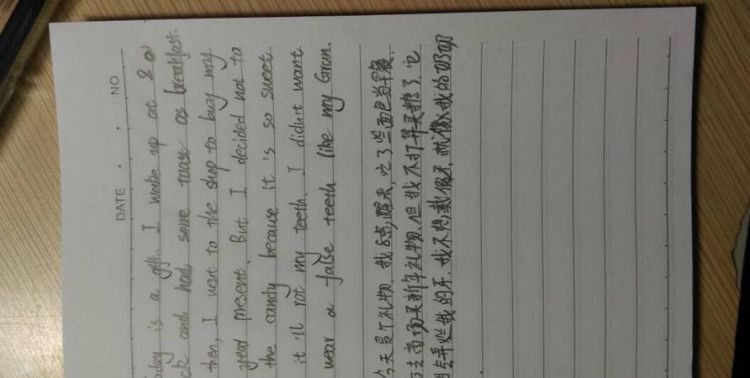 DATE · · NO
oday is a gift. I wake up at 8 o
ck and had some toast as breakfast.
then, I went to the shop to buy my
year present. But I decided not to
the candy because it's so sweet.
it'll rot my teeth. I didn't want
wear a false teeth like my Gran.
今天是个礼物 我8点醒来,吃了些面包当早餐.
去商场买新年礼物.但我不打算买糖了,它
会弄烂我的牙.我不想戴假牙,就像我的奶奶